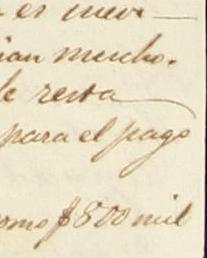 es inevi-
mucho.
le resta
para el pago
como $800 mil